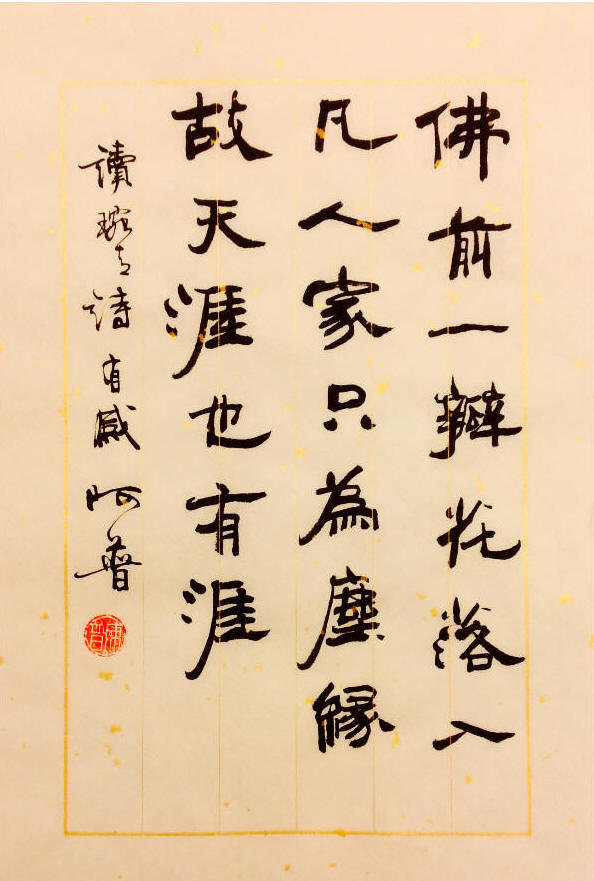 佛前一瓣花落入
凡人家只為塵緣
故天涯也有涯
讀詩有感 阿普